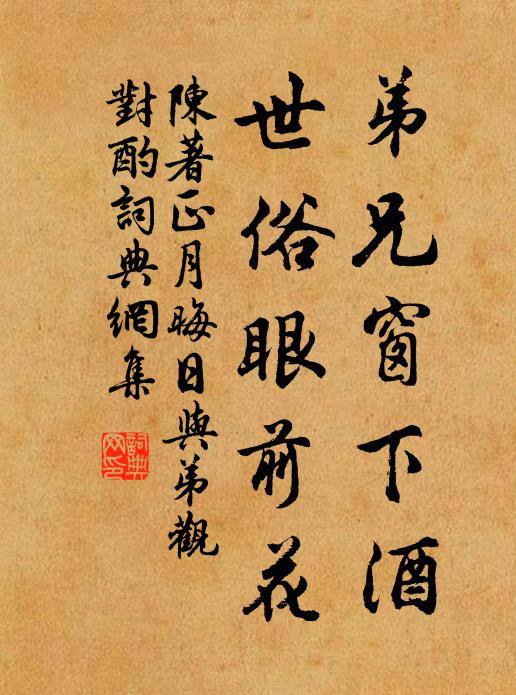 弟兄窗下酒
世俗眼前花
陳著正月晦日與弟觀
對酌詞典網集
詞典
网印